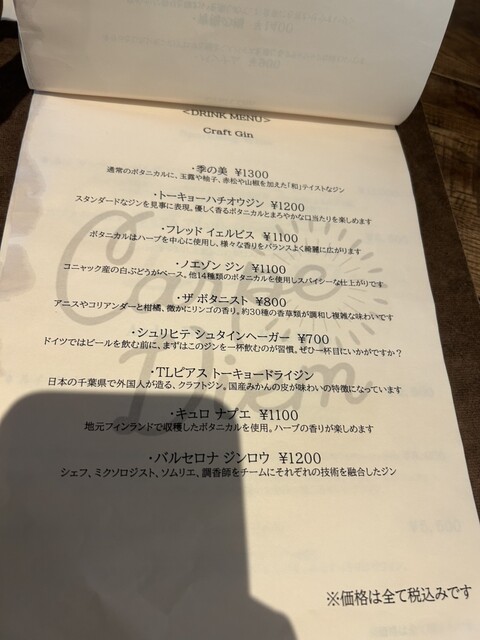 <DRINK MENU>
Craft Gin
・季の美 ¥1300
通常のボタニカルに、玉露や柚子、赤松や山椒を加えた「和」テイストなジン
・トーキョーハチオウジン ¥1200
スタンダードなジンを見事に表現。優しく香るボタニカルとまろやかな口当たりを楽しめます
・フレッド イェルビス ¥1100
ボタニカルはハーブを中心に使用し、様々な香りをバランスよく綺麗に広がります
・ノエゾン ジン ¥1100
コニャック産の白ぶどうがベース。他14種類のボタニカルを使用しスパイシーな仕上がりです
・ザ ボタニスト ¥800
アニスやコリアンダーと柑橘、微かにリンゴの香り。約30種の香草類が調和し複雑な味わいです
・シュリヒテ シュタインヘーガー ¥700
ドイツではビールを飲む前に、まずはこのジンを一杯飲むのが習慣。ぜひ一杯目にいかがですか？
・TLピアス トーキョードライジン
日本の千葉県で外国人が造る、クラフトジン。国産みかんの皮が味わいの特徴になっています
・キュロ ナプエ ¥1100
地元フィンランドで収穫したボタニカルを使用。ハーブの香りが楽しめます
・バルセロナ ジンロウ ¥1200
シェフ、ミクソロジスト、ソムリエ、調香師をチームにそれぞれの技術を融合したジン
Carpe
Diem
※価格は全て税込みです